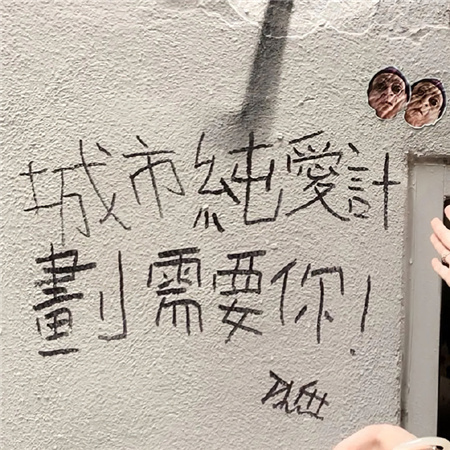 城市純愛計
劃需要你！